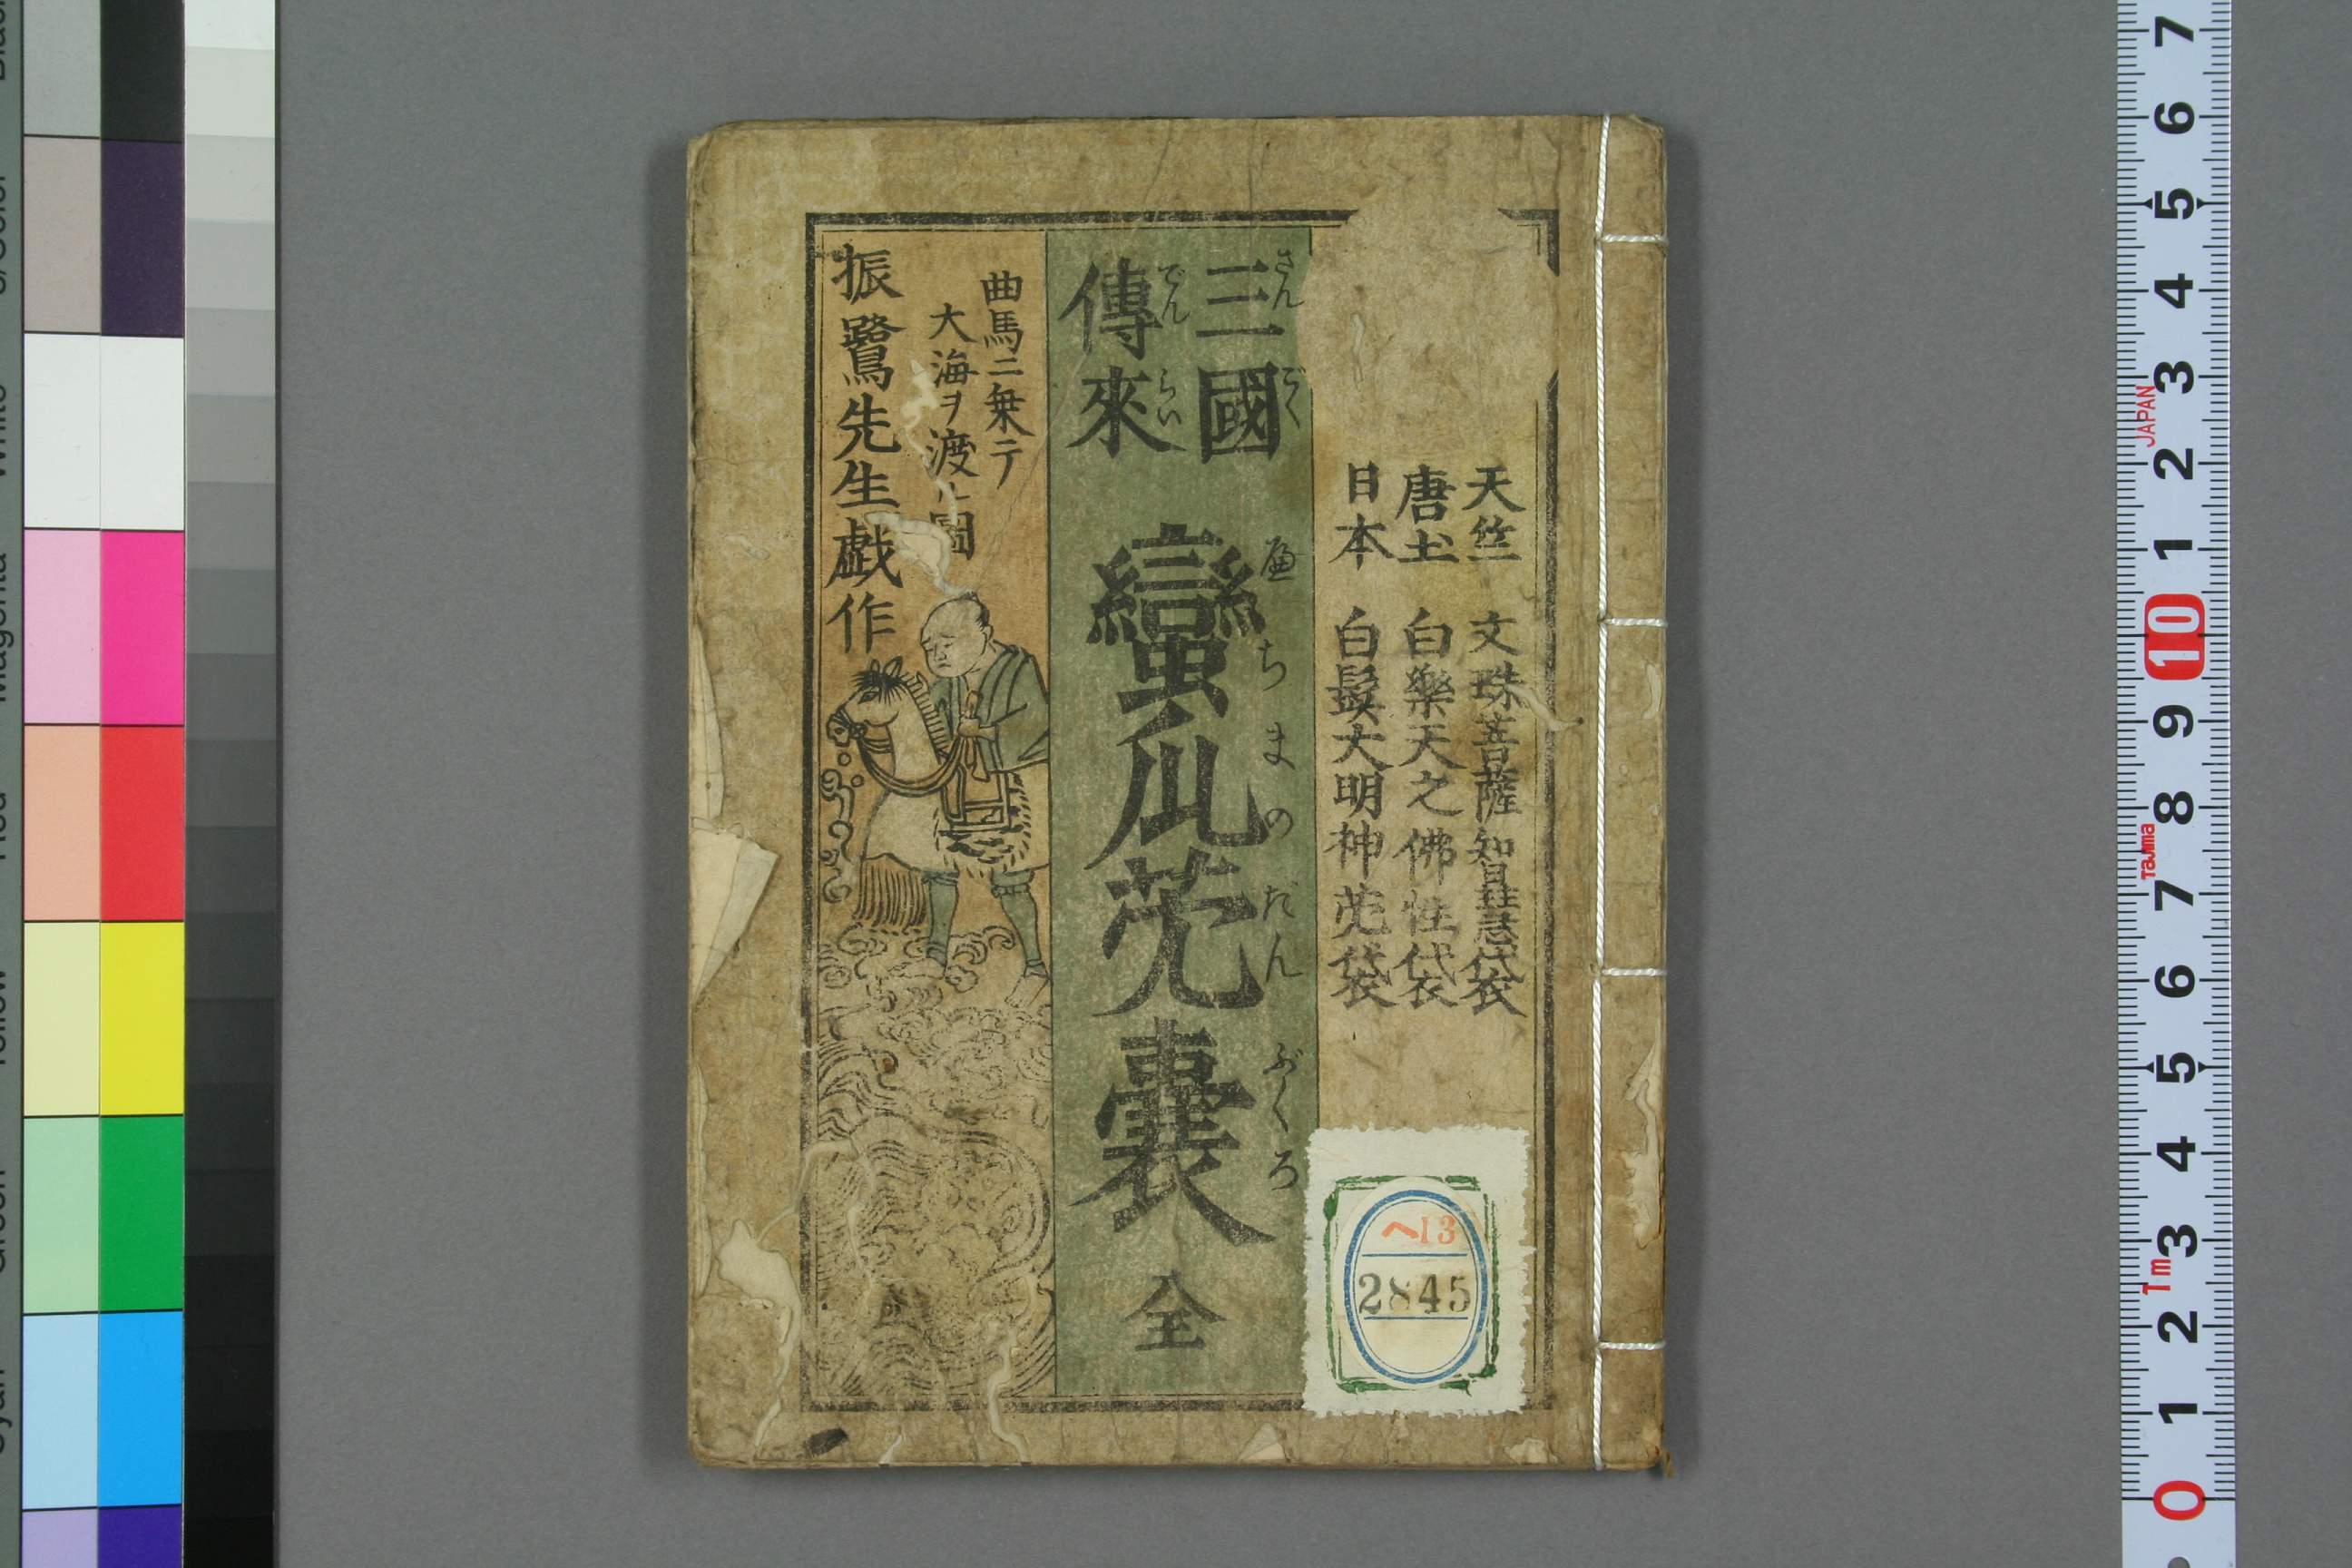 天竺 文珠菩薩智慧袋
唐土 白樂天之佛性袋
日本 白髮大明神荒袋
三國
さんごく
傳來
でんらい
蠻瓜荒嚢 全
へちまのだんぶくろ
曲馬ニ乗テ
大海ヲ渡ル圖
振鷺先生戯作
へ13
2845
7
6
5
4
3
2
1
10
9
8
7
6
5
4
3
2
1
0
JAPAN
Tajima
1m